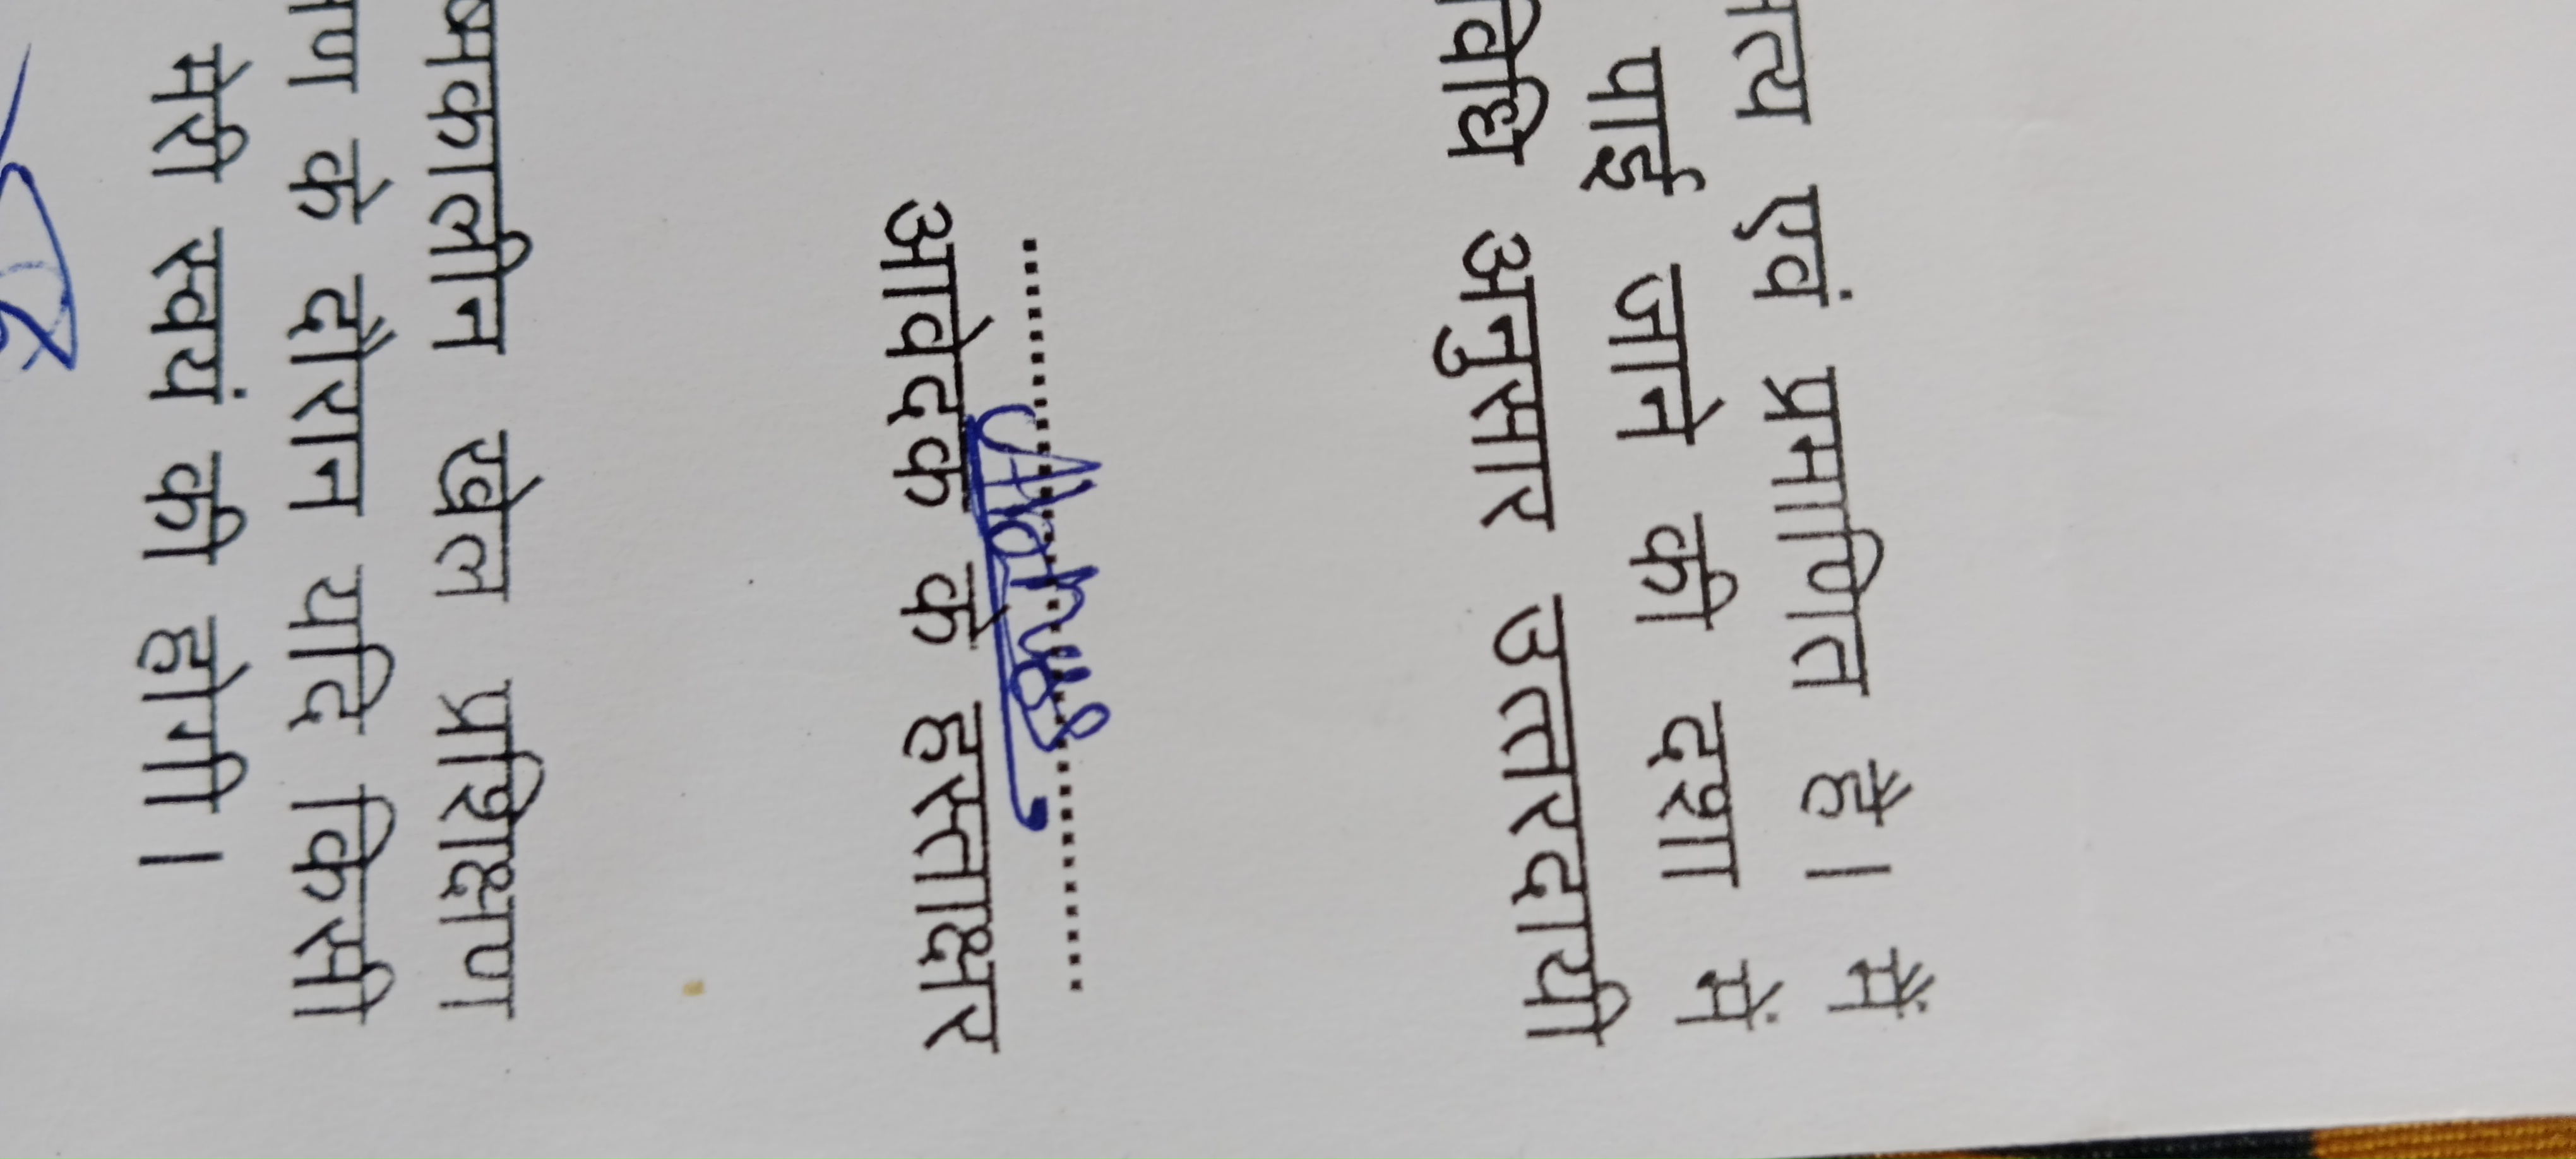 त्य एवं प्रमाणित है। मैं
पाई जाने की दशा में
विधि अनुसार उत्तरदायी
..............................
आवेदक के हस्ताक्षर
ष्मकालीन खेल प्रशिक्षण
ण के दौरान यदि किसी
मेरी स्वयं की होगी।